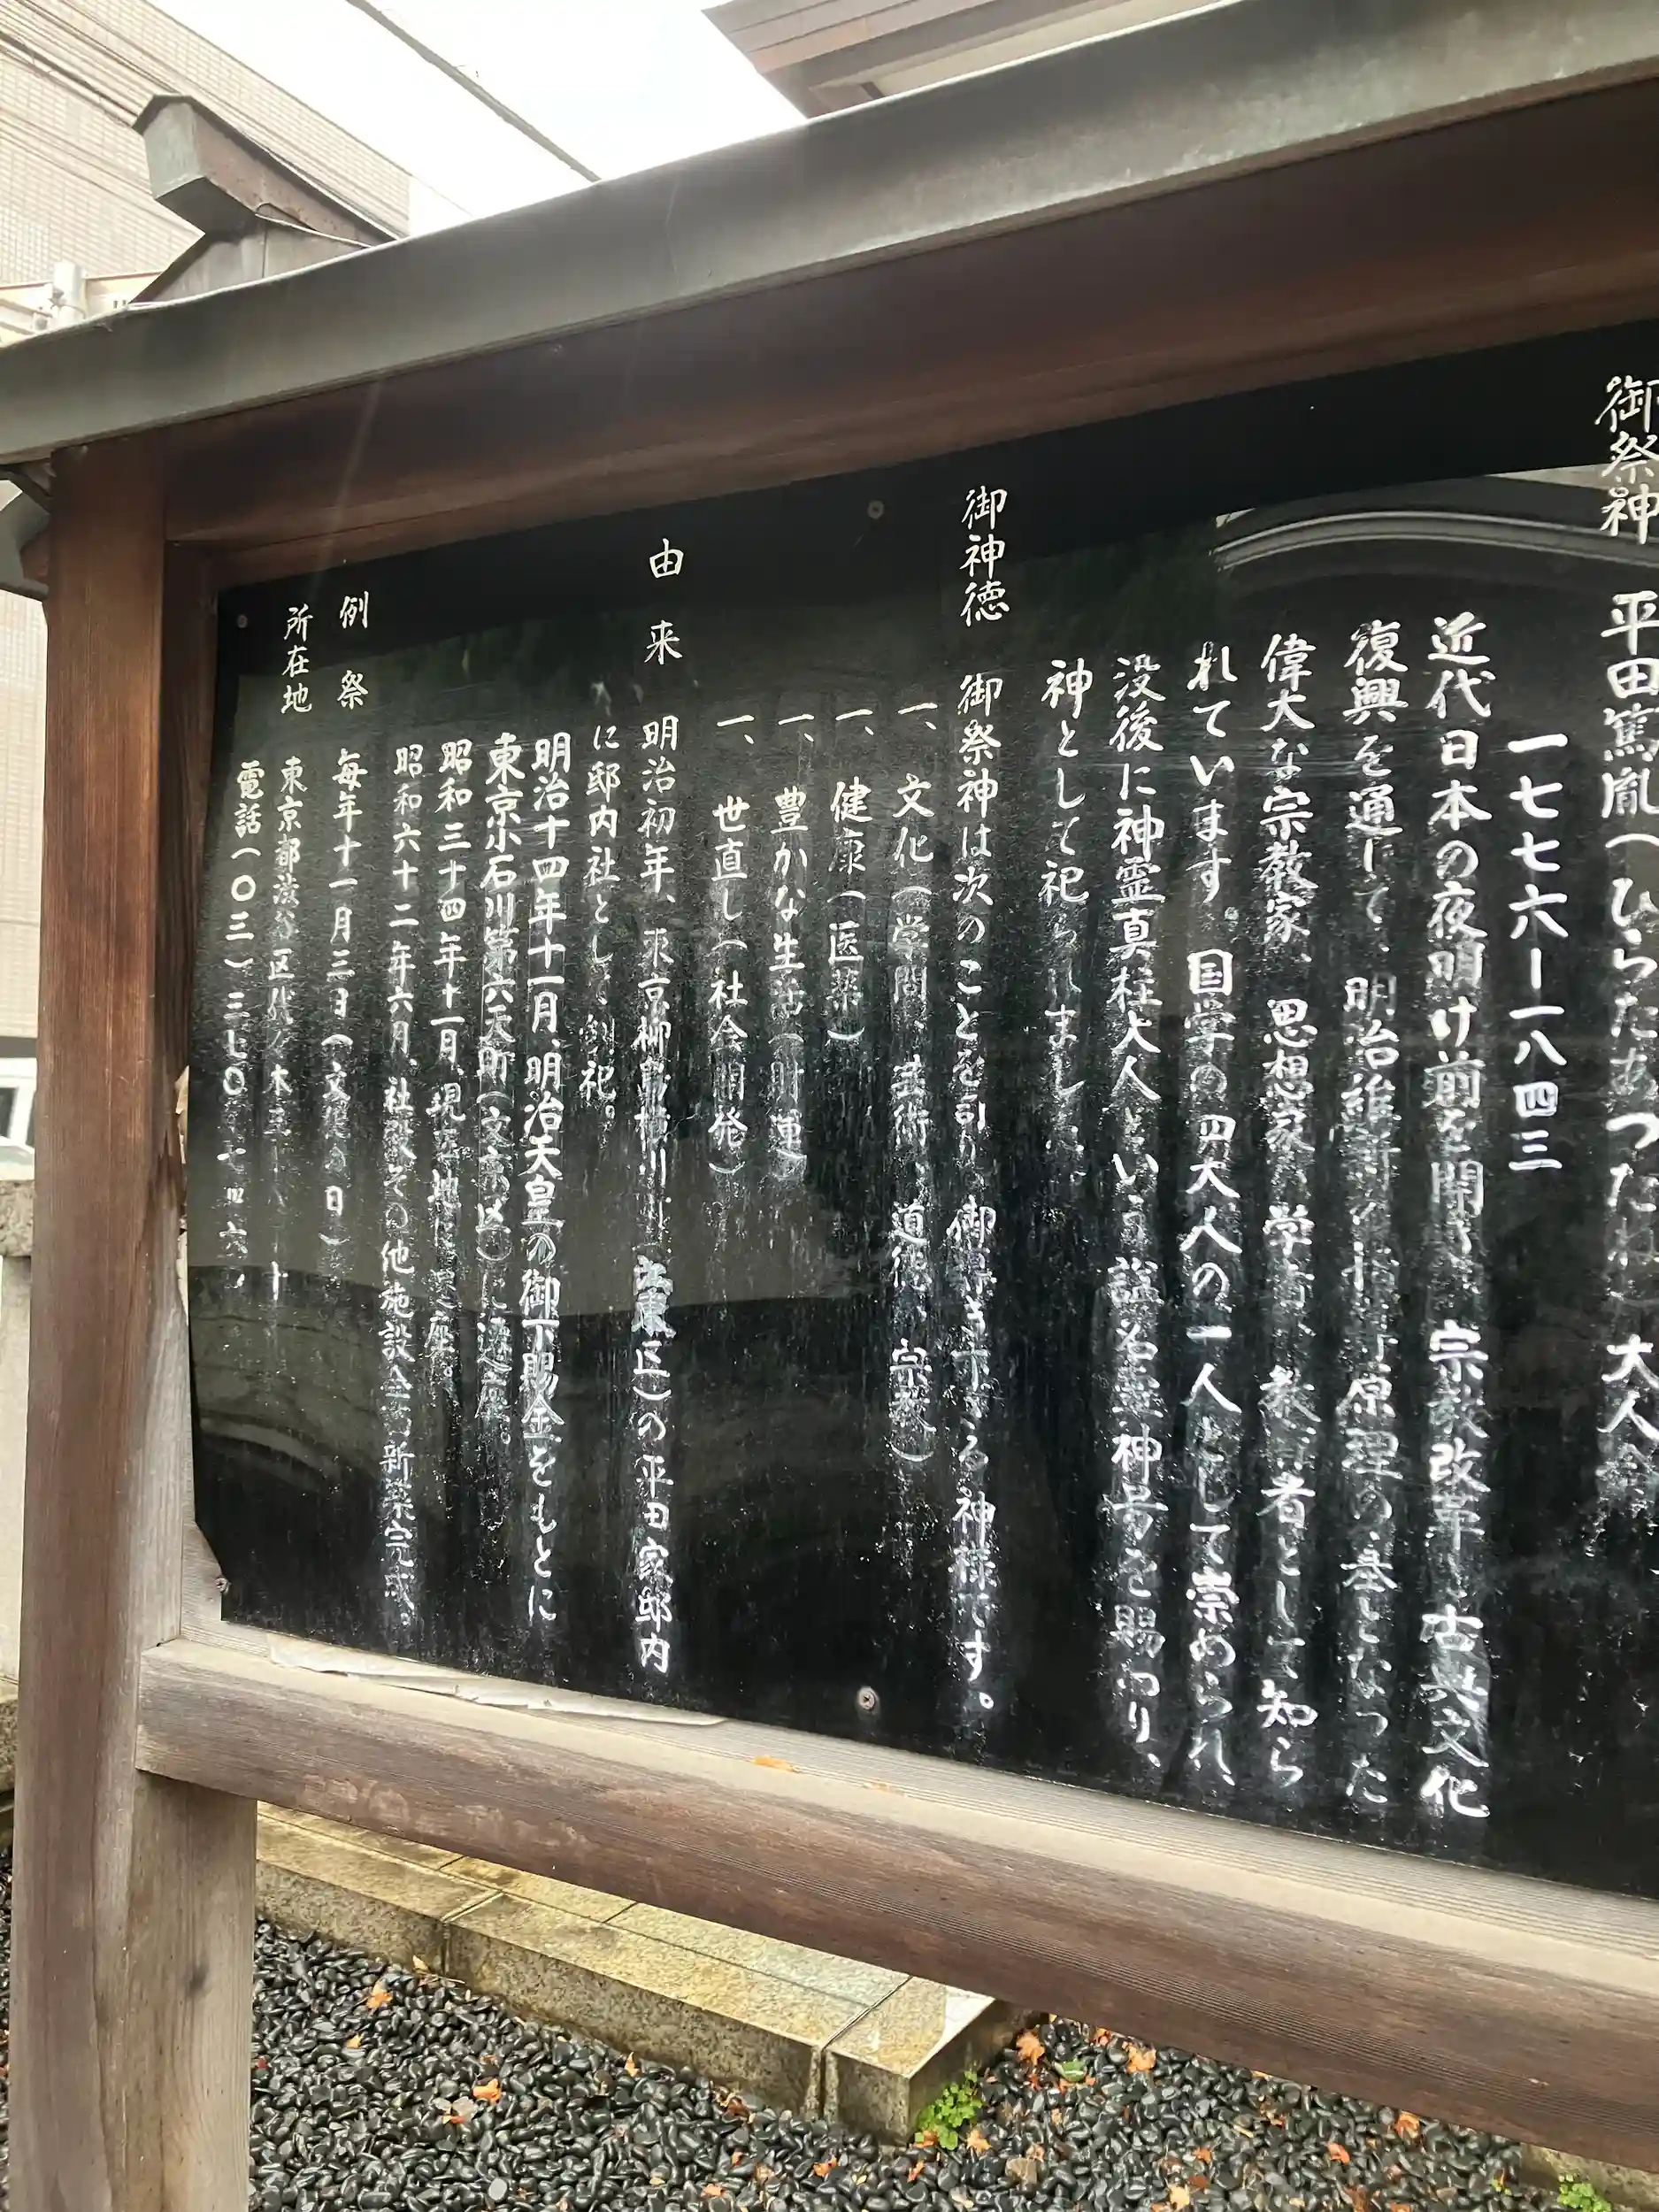 御祭神 平田篤胤（ひらたあつたね）大人命
一七七六ー一八四三
近代日本の夜明け前を開き、宗教改革と古典文化
復興を通じて、明治維新の指導原理の基となった
偉大な宗教家、思想家、学者、教育者として知ら
れています。国学の四大人の一人として崇められ、
没後に神霊真柱大人という諡名と神号を賜わり、
神として祀られました。
御神徳 御祭神は次のことを引き御導き下さる神様です。
一、文化（学問、芸術、道徳、宗教）
一、健康（医薬）
一、豊かな生活（開運）
一、世直し（社会開発）
由来 明治初年、東京柳島横川（江東区）の平田家邸内
に邸内社として創祀。
明治十四年十一月、明治天皇の御下賜金をもとに
東京小石川第六天町（文京区）に遷座。
昭和三十四年十一月、現在地に遷座。
昭和六十二年六月、社殿その他施設全部新築完成。
例祭 毎年十一月三日（文化の日）
所在地 東京都渋谷区代々木
電話（〇三）三七〇 七四六